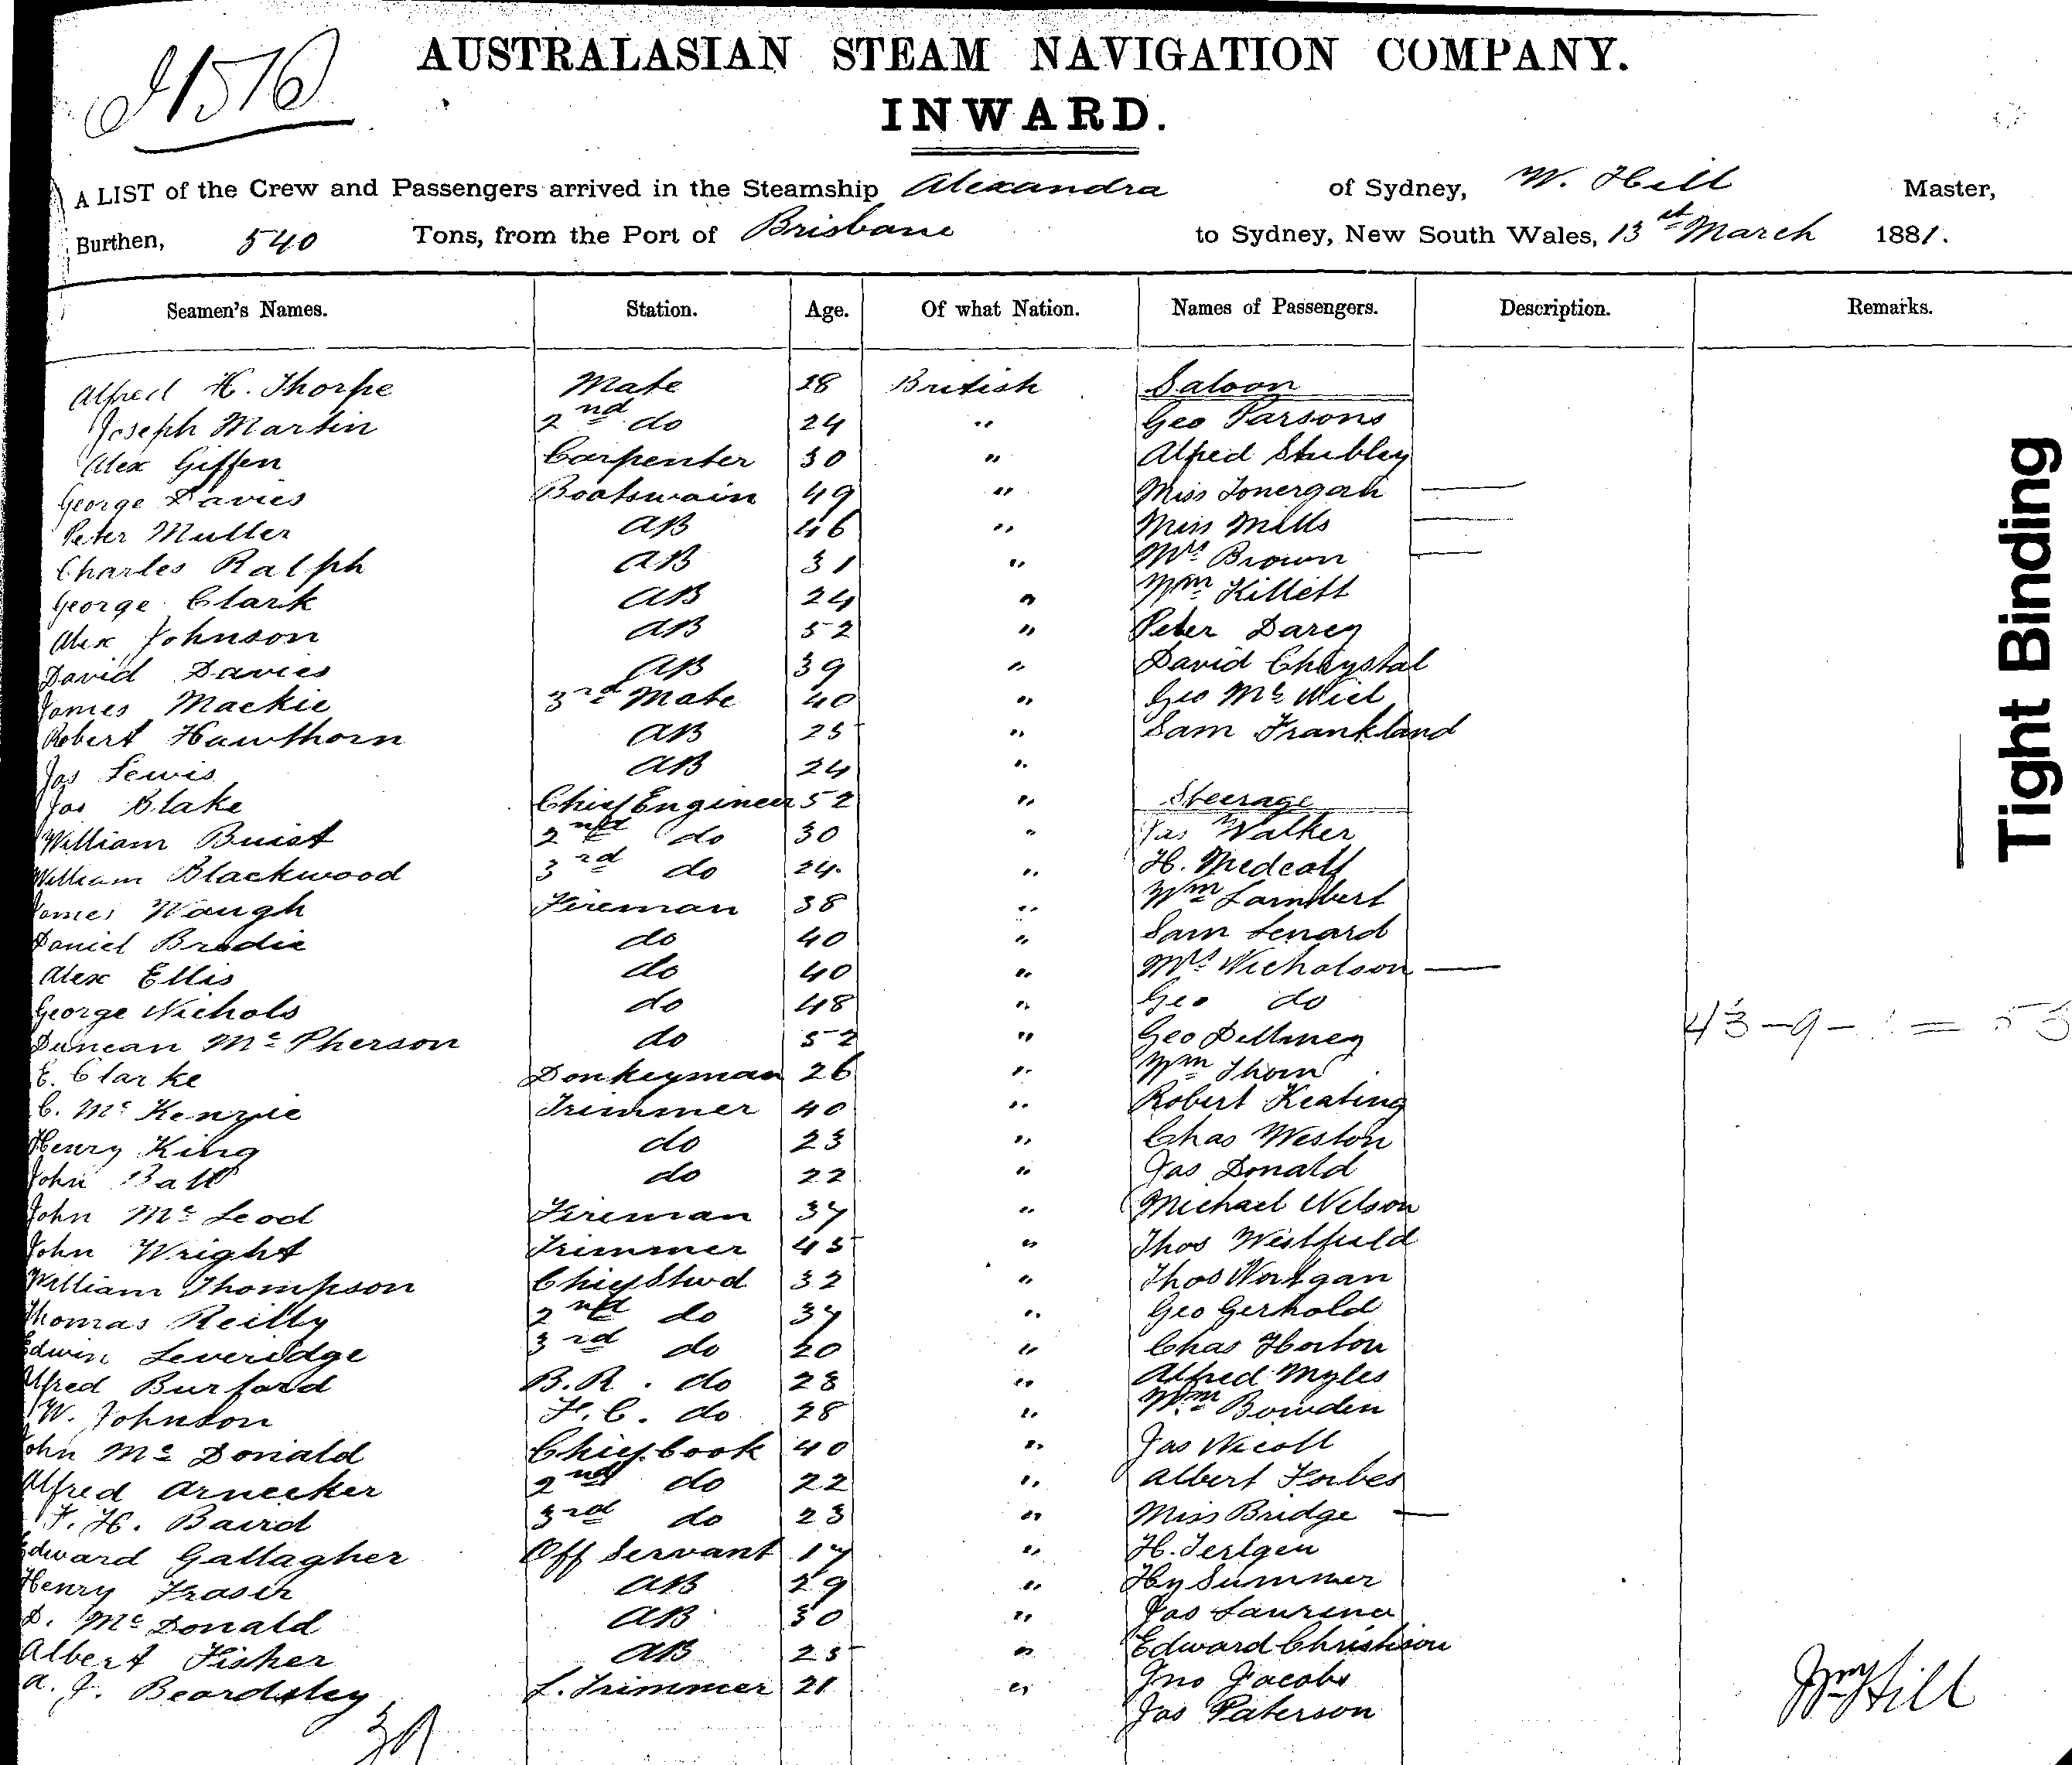 AUSTRALASIAN STEAM NAVIGATION COMPANY.
INWARD.
A LIST of the Crew and Passengers arrived in the Steamship Alexandra of Sydney, W. Hill Master,
Burthen, 540 Tons, from the Port of Brisbane to Sydney, New South Wales, 13th March 1881.
Seamen's Names. Station. Age. Of what Nation. Names of Passengers. Description. Remarks.
Alfred H. Thorpe Mate 28 British Saloon
Joseph Martin 2nd do 24 " Geo Parsons
Alex Giffen Carpenter 30 " Alfred Stubley
George Davies Boatswain 49 " Miss Lonergan —
Peter Muller AB 46 " Miss Mills —
Charles Ralph AB 31 " Mrs Brown —
George Clark AB 24 " Wm Killett
Alex Johnson AB 52 " Peter Darcy
David Davies AB 39 " David Chrystal
James Mackie 3rd Mate 40 " Geo Mc
Robert Hawthorn AB 25 " Sam Frankland
Jas Lewis AB 24 "
Jas Blake Chief Engineer 52 " Steerage
William Buist 2nd do 30 " Jas Walker
William Blackwood 3rd do 24 " H. Medcalf
James Waugh Fireman 38 " Wm Lambert
Daniel Brodie do 40 " Sam Lenard
Alex Ellis do 40 " Mrs Nicholson —
George Nichols do 48 " Geo do
Duncan McPherson do 52 " Geo
E. Clarke Donkeyman 26 " Wm Thorn
C. McKenzie Trimmer 40 " Robert Keating
Henry King do 23 " Chas Weston
John Ball do 22 " Jas Donald
John McLeod Fireman 37 " Michael Nelson
John Wright Trimmer 45 " Thos Westfield
William Thompson Chief Stwd 32 " Thos Wortgan
Thomas Reilly 2nd do 37 " Geo Gerhold
Edwin Leveridge 3rd do 20 " Chas Horton
Alfred Burford B.R. do 28 " Alfred Myles
W. Johnson F.C. do 28 " Wm Bowden
John McDonald Chief Cook 40 " Jas Nicoll
Alfred Arnecker 2nd do 22 " Albert Forbes
F. H. Baird 3rd do 23 " Miss Bridge —
Edward Gallagher Off Servant 17 " H.
Henry Fraser AB 29 " Hy Summer
D. McDonald AB 30 " Jas
Albert Fisher AB 25 " Edward Christison
A. J. Beardsley L. Trimmer 21 " Jno Jacobs
Jas Paterson
39
Wm Hill
Tight Binding